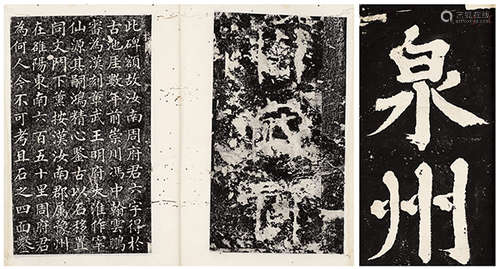 此碑額故汝南周府君六字得於
古池崖數年前崇川馮中翰雲鵬
審為漢刻景武王明府大淮作宰
仙源其嗣鴻精心鑒古以石移置
同文門下案按漢汝南郡屬豫州
在雒陽東南六百五十里周府君
為何人今不可考且石之四面
泉州